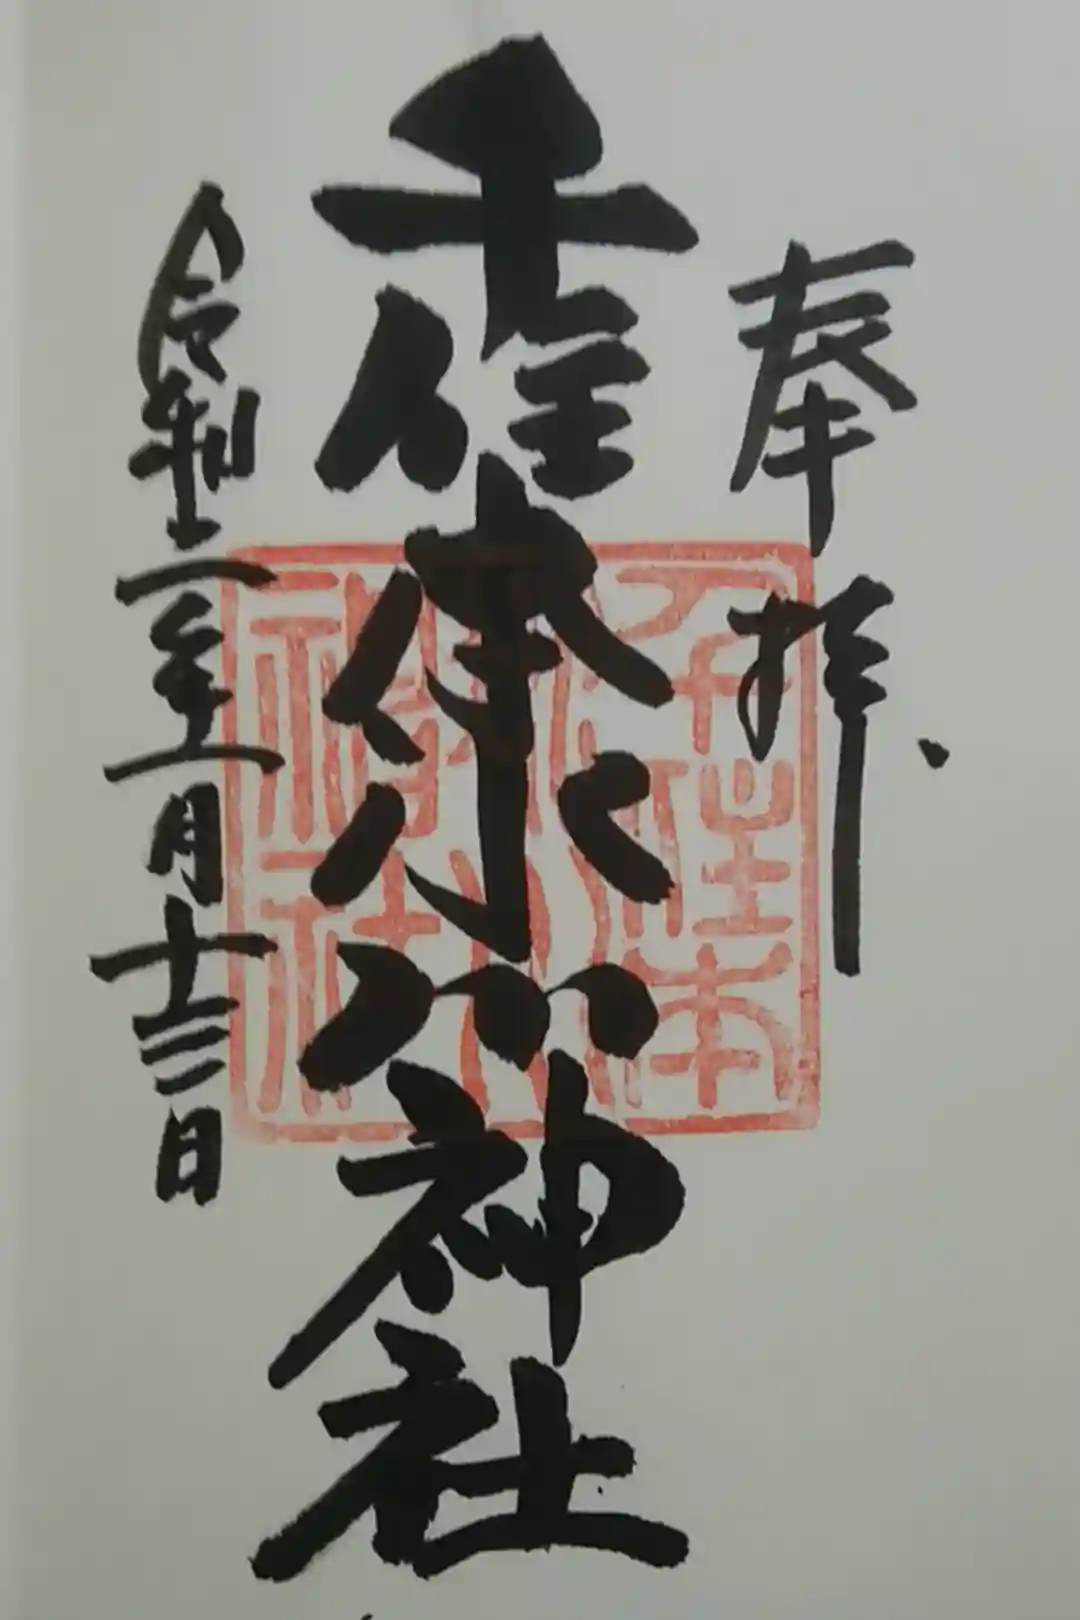 奉拝、
千住本氷川神社
令和二年一月十三日
千住本
氷川
神社